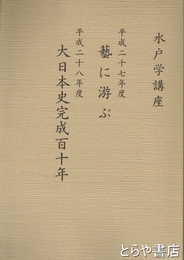 水戸学講座
平成二十七年度
藝に游ぶ
平成二十八年度
大日本史完成百十年
とらや書店